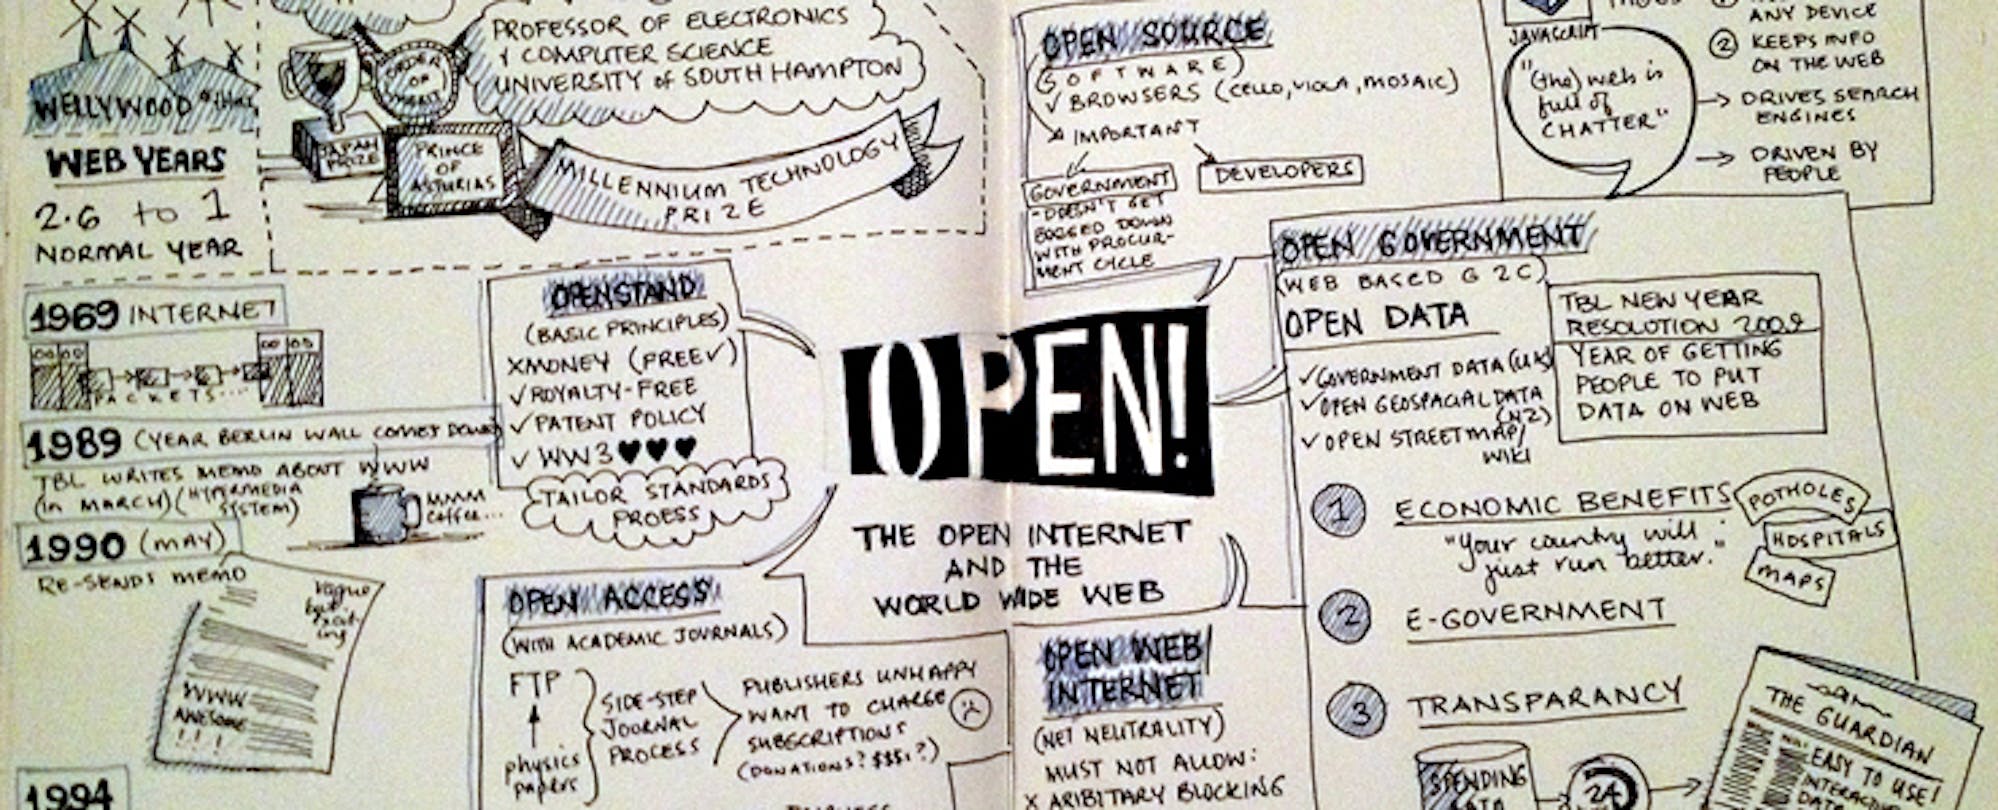 WELLYWOOD
WEB YEARS
2.6 to 1
NORMAL YEAR
PROFESSOR OF ELECTRONICS
& COMPUTER SCIENCE
UNIVERSITY of SOUTH HAMPTON
ORDER
OF
MERIT
JAPAN
PRIZE
PRINCE
OF
ASTURIAS
MILLENNIUM TECHNOLOGY
PRIZE
1969 INTERNET
PACKETS...
1989 (YEAR BERLIN WALL COMES DOWN)
TBL WRITES MEMO ABOUT WWW
(in MARCH) (HYPERMEDIA
SYSTEM)
MMM
coffee...
1990 (MAY)
RE-SENDS MEMO
Vague
but
excit-
ing
WWW
AWESOME
!!!
1994
OPENSTAND
(BASIC PRINCIPLES)
XMONEY (FREE✓)
✓ROYALTY-FREE
✓PATENT POLICY
✓ WW3♥♥♥
TAILOR STANDARDS
PROESS
OPEN ACCESS
(WITH ACADEMIC JOURNALS)
FTP
physics
papers
SIDE-STEP
JOURNAL
PROCESS
PUBLISHERS UNHAPPY
WANT TO CHARGE
SUBSCRIPTIONS
(DONATIONS? $$$?)
OPEN!
THE OPEN INTERNET
AND THE
WORLD WIDE WEB
OPEN SOURCE
(SOFTWARE)
✓ BROWSERS (CELLO, VIOLA, MOSAIC)
IMPORTANT
GOVERNMENT
-DOESN'T GET
BOGGED DOWN
WITH PROCUR-
MENT CYCLE
DEVELOPERS
OPEN WEB/
INTERNET
(NET NEUTRALITY)
MUST NOT ALLOW:
X ARIBITARY BLOCKING
JAVASCRIPT
"(the) web is
full of
CHATTER"
ANY DEVICE
② KEEPS INFO
ON THE WEB
→ DRIVES SEARCH
ENGINES
→ DRIVEN BY
PEOPLE
OPEN GOVERNMENT
(WEB BASED G2C)
OPEN DATA
✓GOVERNMENT DATA (UK)
✓OPEN GEOSPACIAL DATA
(NZ)
✓OPEN STREETMAP/
WIKI
TBL NEW YEAR
RESOLUTION 2009
YEAR OF GETTING
PEOPLE TO PUT
DATA ON WEB
1 ECONOMIC BENEFITS
"Your country will
just run better."
POTHOLES
HOSPITALS
MAPS
2 E-GOVERNMENT
3 TRANSPARANCY
SPENDING
DATA
24
THE GUARDIAN
EASY TO USE!